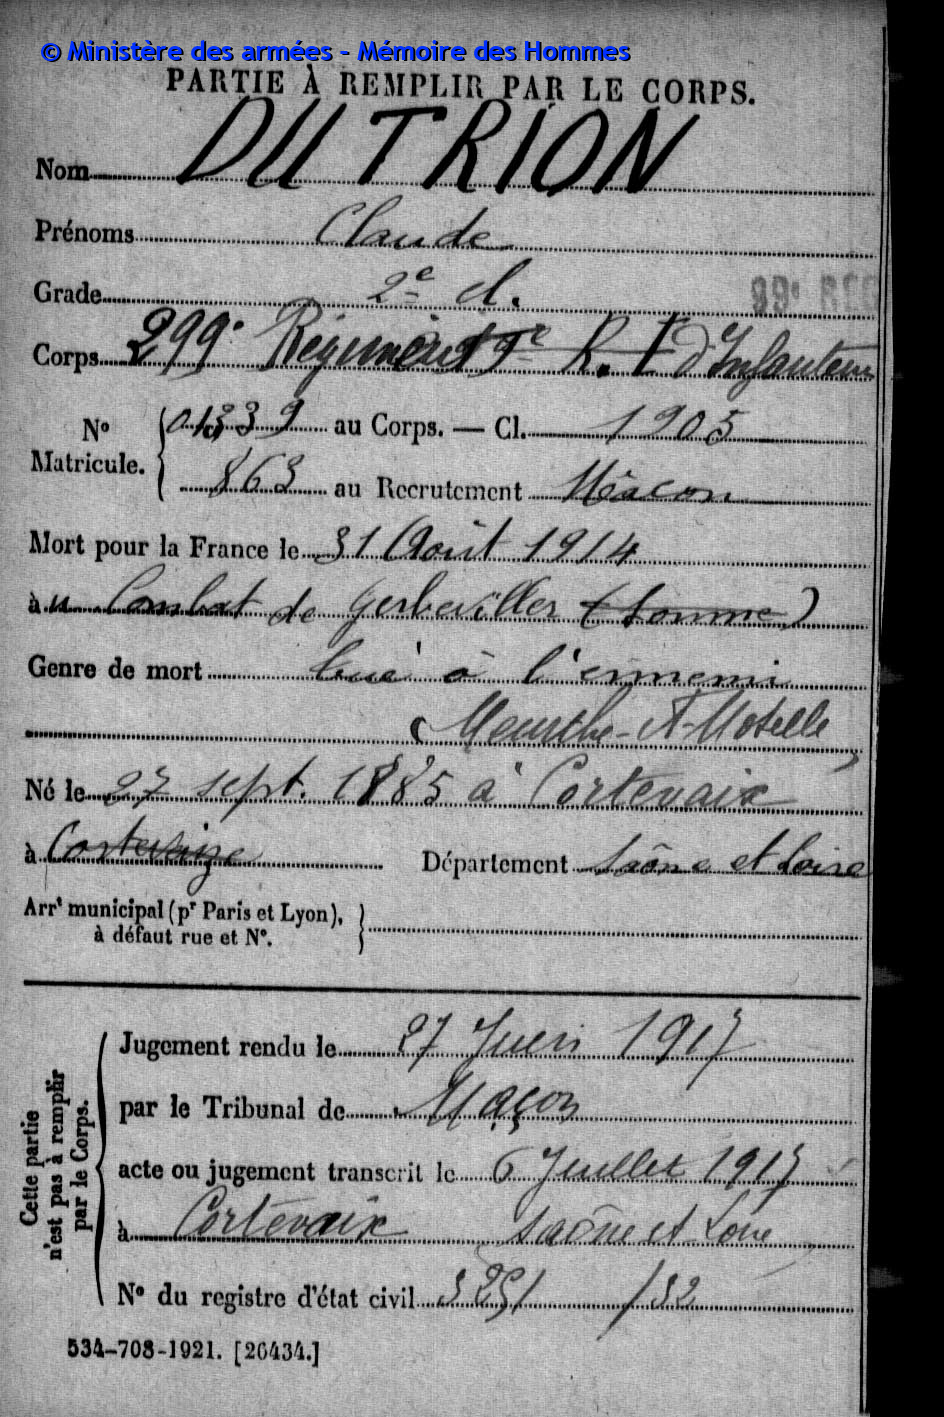 © Ministère des armées - Mémoire des Hommes
PARTIE À REMPLIR PAR LE CORPS.
Nom DUTRION
Prénoms Claude
Grade 2e cl.
Corps 299e Régiment R. I d'Infanterie
No Matricule. 01339 au Corps. — Cl. 1905
863 au Recrutement Mâcon
Mort pour la France le 31 Août 1914
à u Combat de Gerbeviller (Somme)
Genre de mort tué à l'ennemi
(Meurthe-et-Moselle)
Né le 27 sept. 1885 à Cortevaix
à Département Saône et Loire
Arrt municipal (pr Paris et Lyon),
à défaut rue et No.
Cette partie n'est pas à remplir par le Corps.
Jugement rendu le 27 Juin 1917
par le Tribunal de Maçon
acte ou jugement transcrit le 6 Juillet 1917
à Cortevaix Saône et Loire
No du registre d'état civil /32
534-708-1921. [26434.]